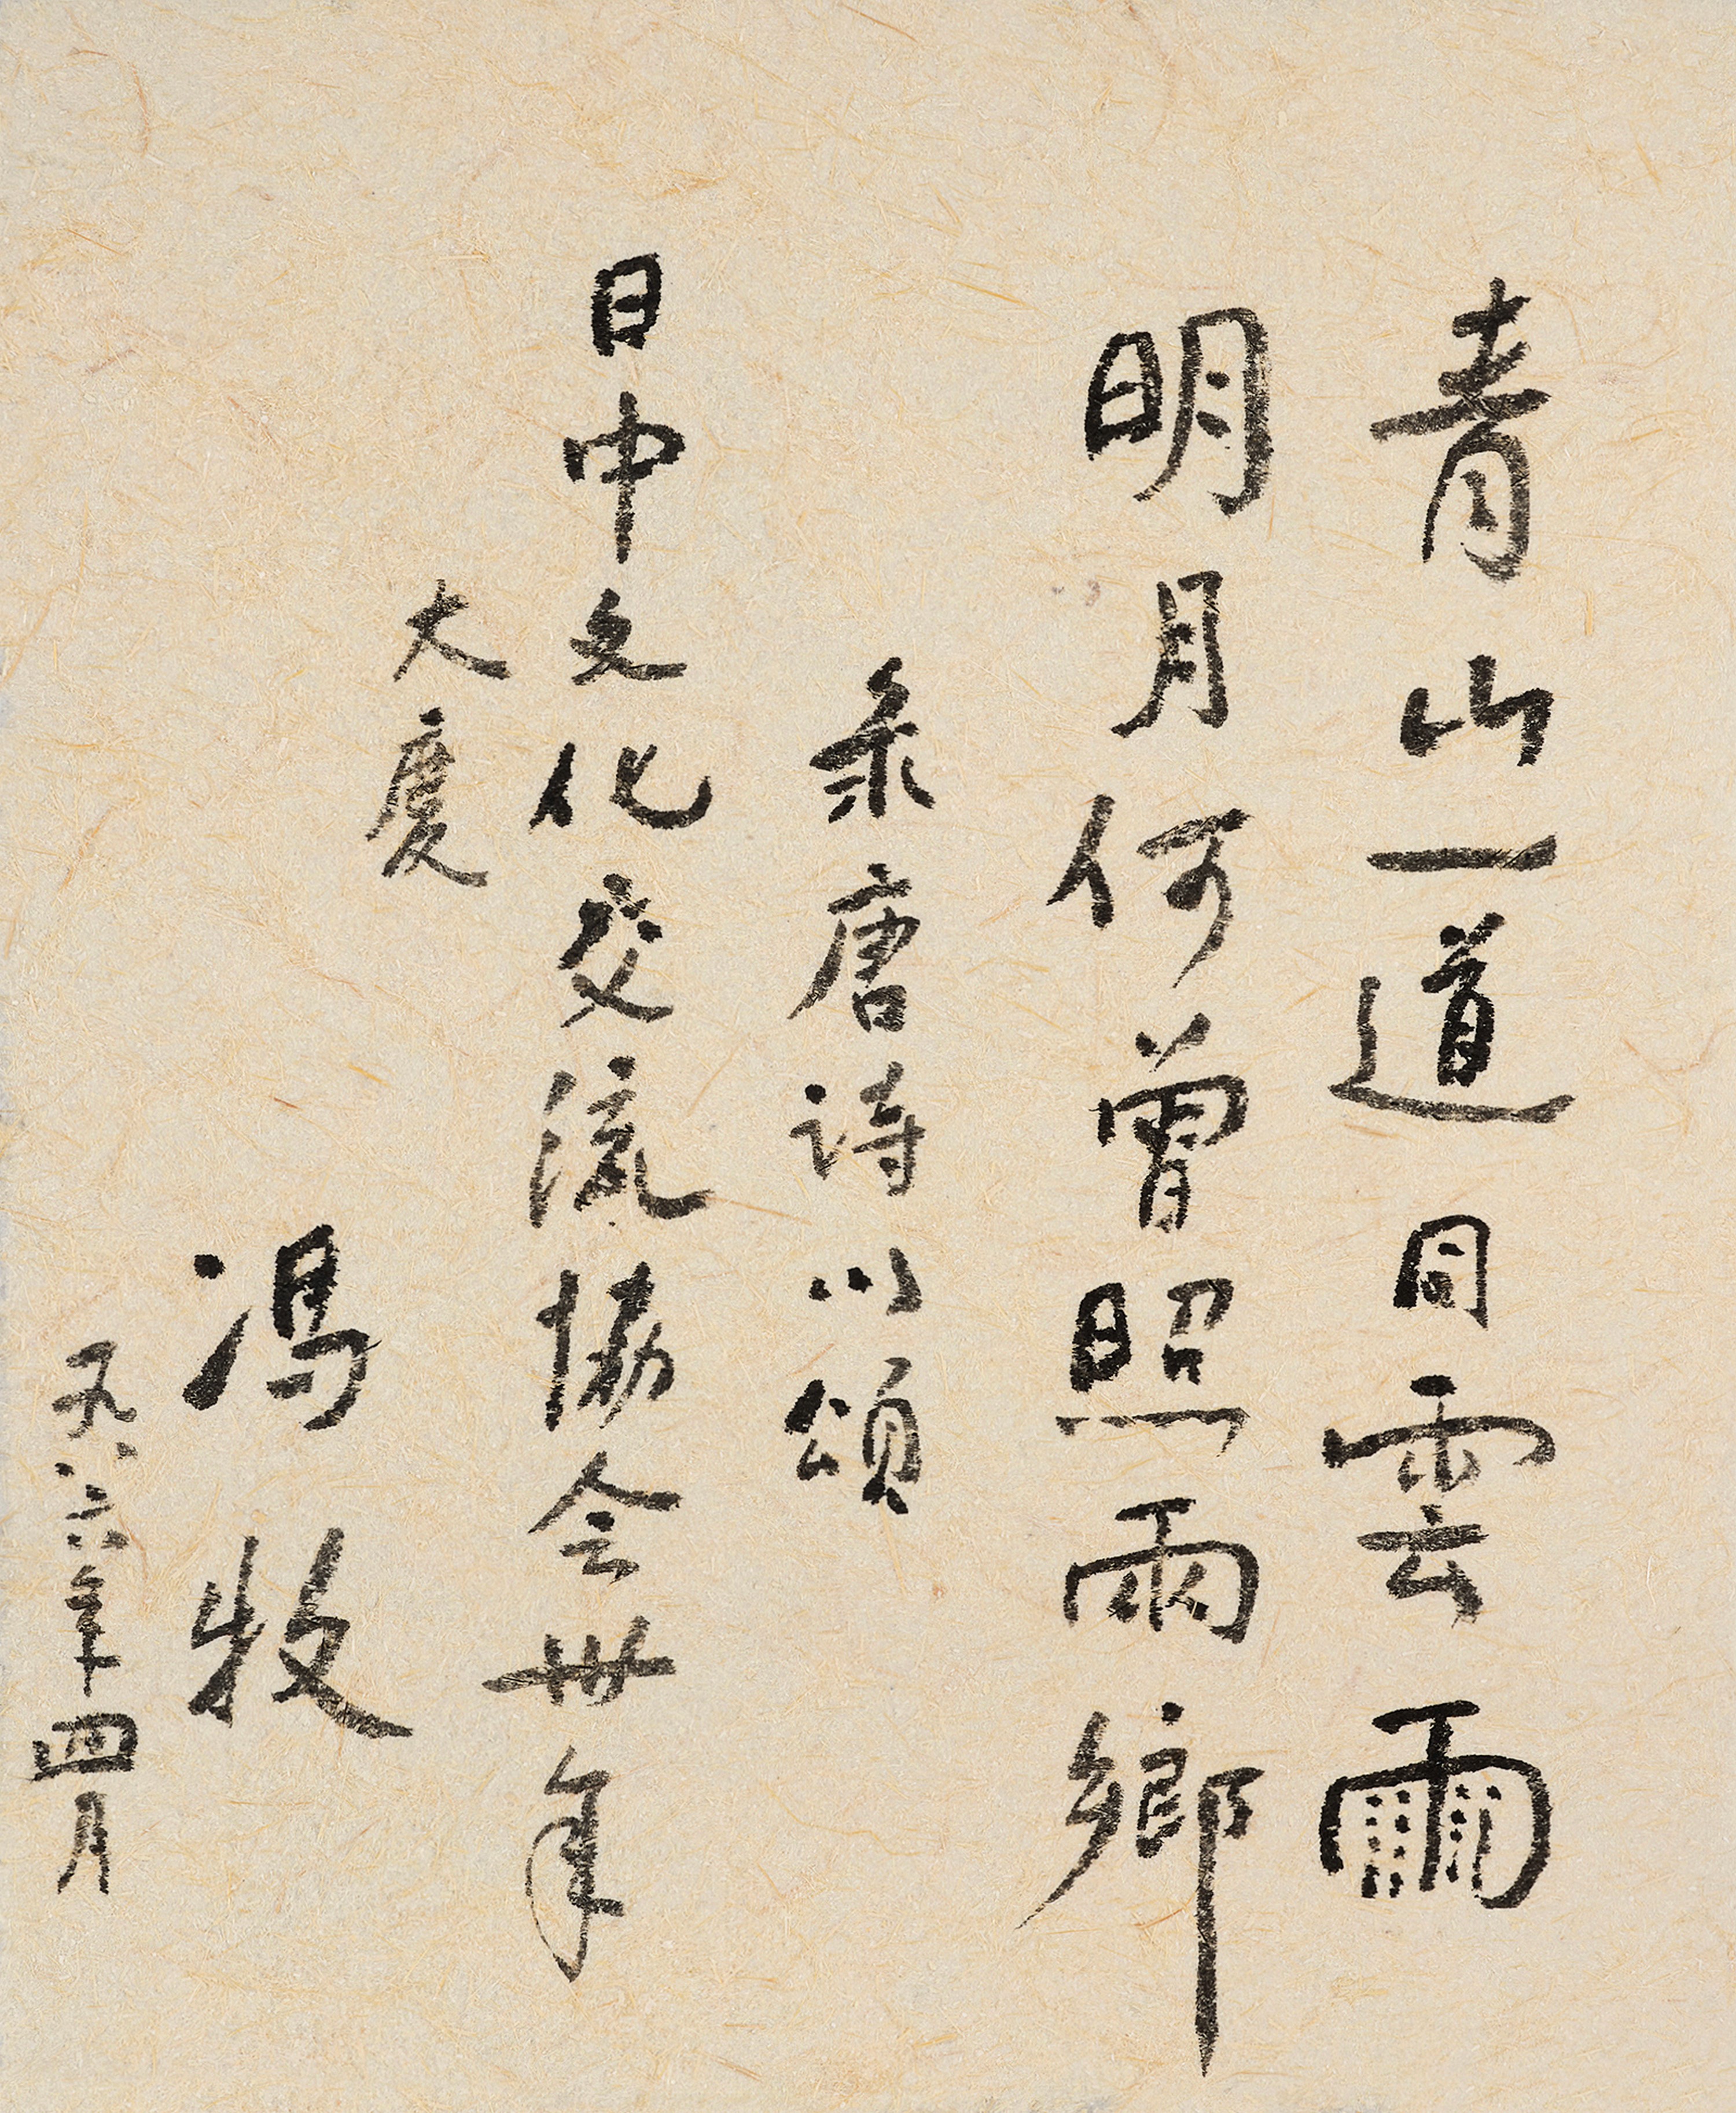 青山一道同雲雨
明月何曾照兩鄉
录唐诗以頌
日中文化交流協会卅年
大慶
馮牧
一九八六年四月